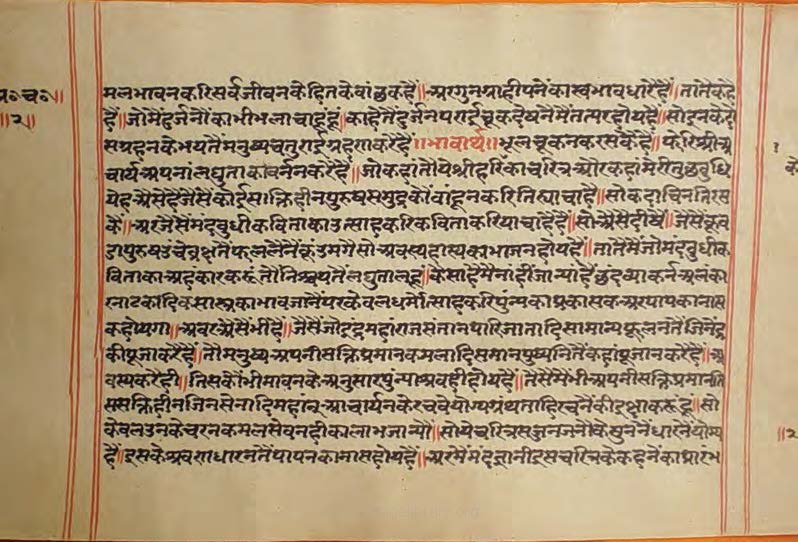 मलभावनकरिसर्वजीवनकेहितकेवांछकहैं॥अरगुनग्राहीपनेंकास्वभावधारैहैं॥तातैंकहै
हैं॥जोमैंदुर्जनौंकाभीभलाचाहूंहूं॥काहेतैंदुर्जनपराईचूकदेषनैमैंतत्परहोयहैं॥सोइनकेदो
सग्रहनकेभयतैंमनुष्यचतुराईग्रहणकरैहैं॥भावार्थ॥भूलचूकनकरसकैंहैं॥फेरिश्रीआ
चार्यअपनांलघुताकावर्ननकरैंहैं॥जोकहांतौयेश्रीहरिकाचरित्रऔरकहांमेरीतुछबुधि
येहऐसेहैंजैसैंकोईसक्तिहीनपुरुषसमुद्रकौंवांहूनकरितिह्याचाहै॥सोकदाचिनतिरस
कैं॥अरजैसैंमंदबुधीकविताकाउत्साहकरिकविताकरियाचाहैहैं॥सोऐसेदीषैं॥जैसैंकूव
डापुरुषऊंचेवृक्षतैंफललैनैकूंउमगैसोअवस्यहास्यकाभाजनहोयहैं॥तातैंमैंजोमंदबुधीक
विताकाअहंकारकरूंतौनिश्चयतैंलघुतालहूं॥केसाहैमैंनांहीजांन्याहैछंदव्याकर्नअलंका
रनाटकादिकसास्त्रकाभावजानैंपरकेवलधर्मोत्साहकरिपुंन्यकाप्रकासकअरपापकानास
कहोयगा॥अवरऐसैंभीहैं॥जैसैंजोइंद्रमहाराजसंतानपारिजातादिसामान्यफूलनतैंजिनेंद्र
कीपूजाकरैहैं॥तौमनुष्यअपनीसक्तिप्रमानकमलादिसमानपुष्पनितैंकहांपूजानकरैहैं॥अ
वस्यकरैही॥तिसकौंभीभावनकेअनुसारपुंन्याश्रवहीहोयहैं॥तैसैंमैंभीअपनीसक्तिप्रमानति
ससक्तिहीनजिनसेनादिमहांनआचार्यनकेरचवेयोग्यग्रंथताहिरचनैंकीइछाकरूंहूं॥सो
केवलउनकेचरनकमलसेवनहीकालाभजान्यौ॥सोयेचरित्रसज्जनजनौंकेसुननेंधारनेयोग्य
हैं॥इसकेश्रवणधारनतैंपापनकानासहोयहैं॥अरमैंमंदज्ञानीइसचरित्रकेकहनेंकाप्रारंभ